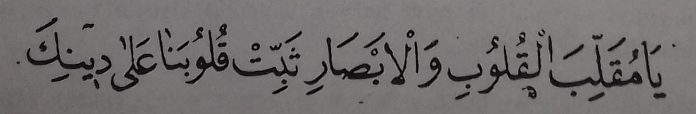 يَا مُقَلِّبَ الْقُلُوْبِ وَالْاَبْصَارِ ثَبِّتْ قُلُوْبَنَا عَلٰى دِيْنِكَ.